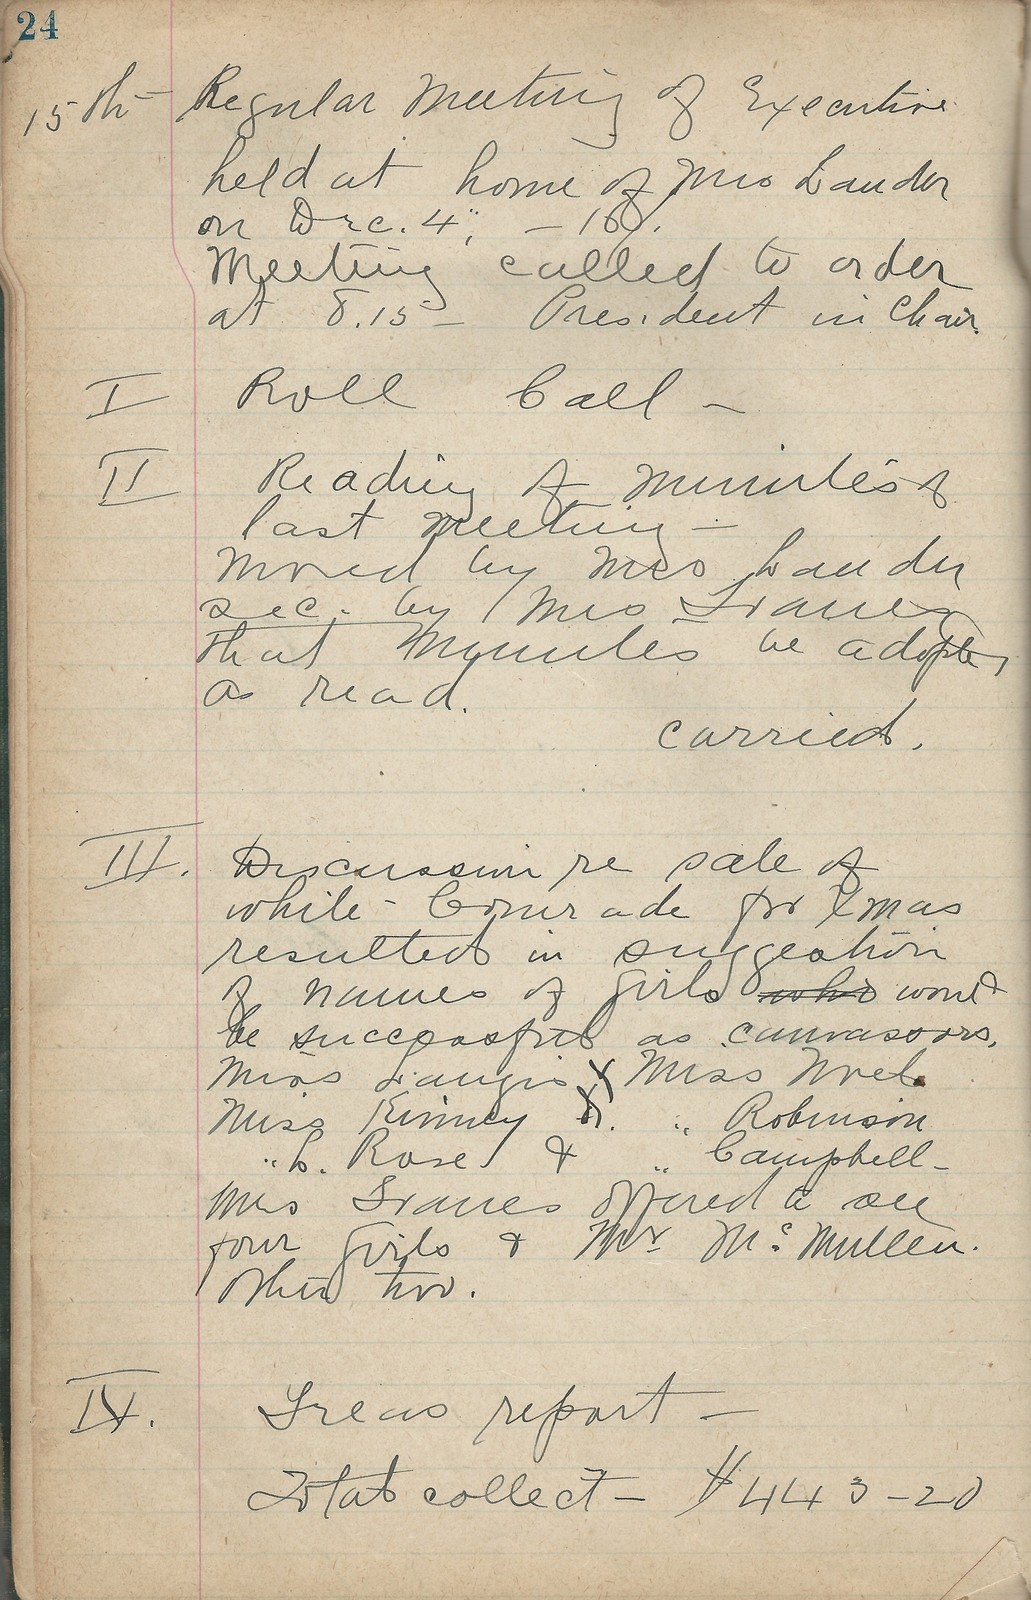 24
15th Regular Meeting of Executive
held at home of Mrs Lauder
on Dec. 4", - 18.
Meeting called to order
at 8.15 - President in Chair.
I Roll Call -
II Reading of Minutes of
last meeting -
Moved by Mrs Lauder
sec. by Mrs
that Minutes be adopted
as read.
carried.
III. Discussion re sale of
white Comrade for Xmas
resulted in suggestion
of names of girls who would
be successful as canvassors.
Miss & Miss Noel.
Miss Kinney &. " Robinson
" L. Rose & " Campbell -
Mrs offered to see
four girls & Mr McMullen.
other two.
IV. Treas report -
Total collect - $443-20